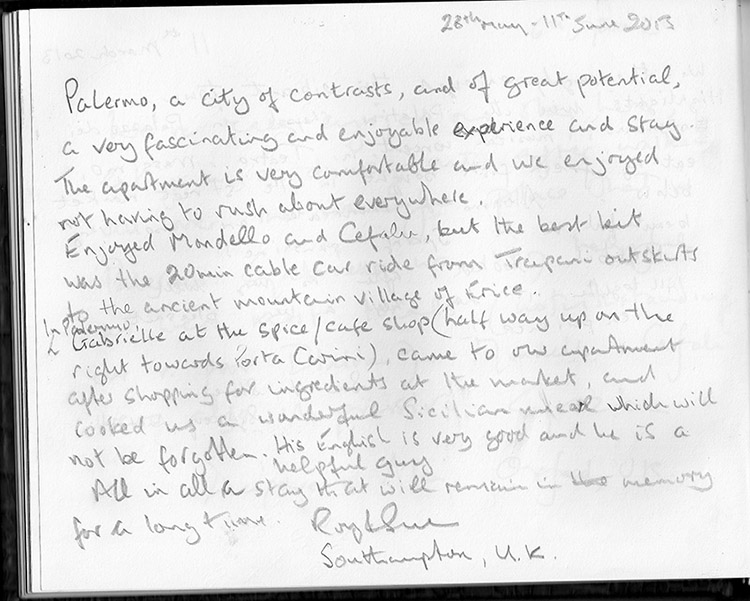 28th May - 11th June 2013
Palermo, a city of contrasts, and of great potential,
a very fascinating and enjoyable experience and stay.
The apartment is very comfortable and we enjoyed
not having to rush about everywhere.
Enjoyed Mondello and Cefalu, but the best bit
was the 20min cable car ride from Trapani outskirts
to the ancient mountain village of Erice.
In Palermo,
Gabrielle at the spice/cafe shop (half way up on the
right towards Porta Carini), came to our apartment
after shopping for ingredients at the market, and
cooked us a wonderful Sicilian meal which will
not be forgotten. His English is very good and he is a
helpful guy
All in all a stay that will remain in the memory
for a long time. Roy & Sue
Southampton, U.K.